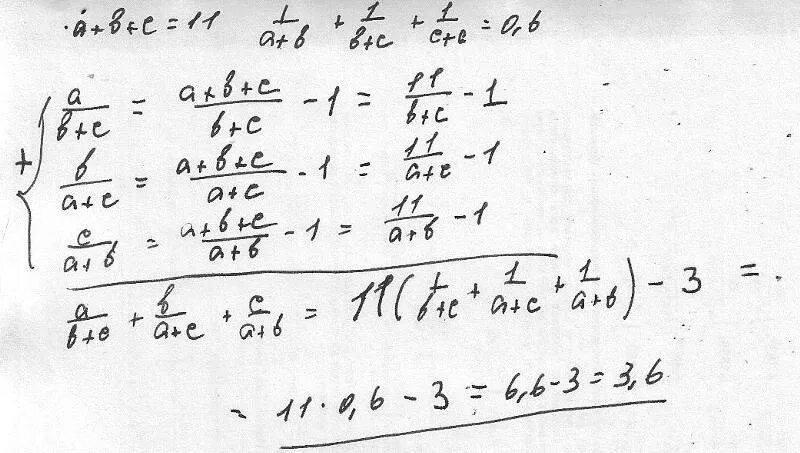 a+b+c=11 1/(a+b) + 1/(b+c) + 1/(c+a) = 0,6
a/(b+c) = (a+b+c)/(b+c) - 1 = 11/(b+c) - 1
+ b/(a+c) = (a+b+c)/(a+c) - 1 = 11/(a+c) - 1
c/(a+b) = (a+b+c)/(a+b) - 1 = 11/(a+b) - 1
a/(b+c) + b/(a+c) + c/(a+b) = 11(1/(b+c) + 1/(a+c) + 1/(a+b)) - 3 =
= 11·0,6 - 3 = 6,6-3 = 3,6